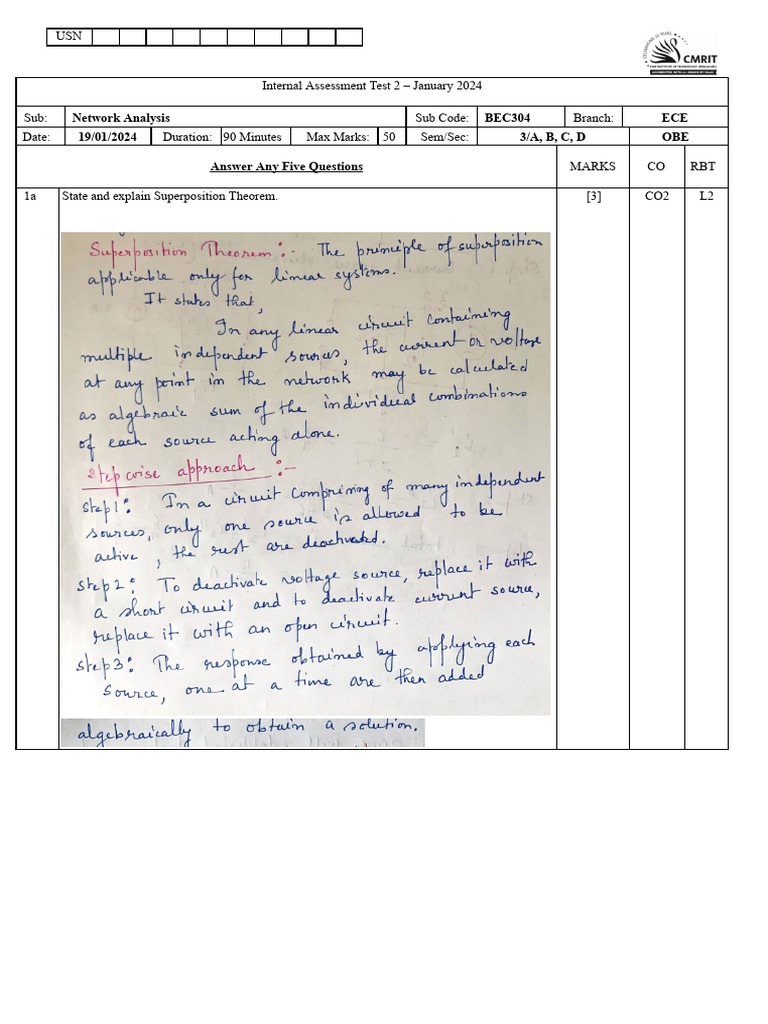 USN
CELEBRATING 25 YEARS
CMRIT
Internal Assessment Test 2 – January 2024
Sub: Network Analysis Sub Code: BEC304 Branch: ECE
Date: 19/01/2024 Duration: 90 Minutes Max Marks: 50 Sem/Sec: 3/A, B, C, D OBE
Answer Any Five Questions MARKS CO RBT
1a State and explain Superposition Theorem. [3] CO2 L2
Superposition Theorem:- The principle of superposition
applicable only for linear systems.
It states that,
In any linear circuit containing
multiple independent sources, the current or voltage
at any point in the network may be calculated
as algebraic sum of the individual combinations
of each source acting alone.
Stepwise approach :-
Step1: In a circuit comprising of many independent
sources, only one source is allowed to be
active, the rest are deactivated.
Step2: To deactivate voltage source, replace it with
a short circuit and to deactivate current source,
replace it with an open circuit.
Step3: The response obtained by applying each
source, one at a time are then added
algebraically to obtain a solution.